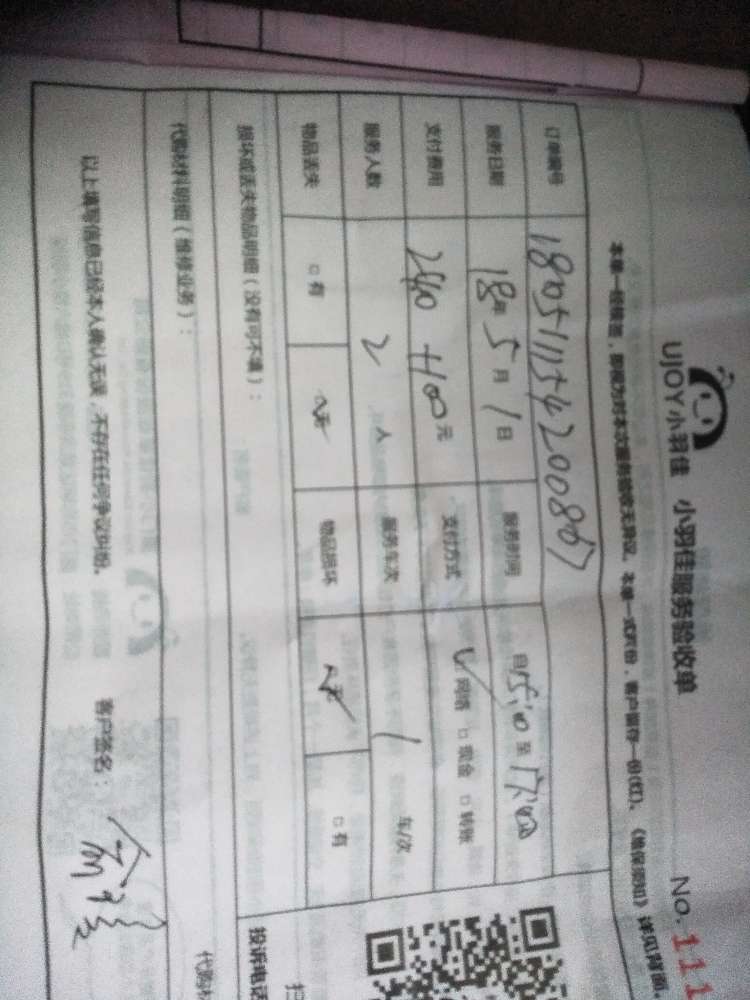 UJOY小羽佳 小羽佳服务验收单
No. 111
本单一经填签，即视为对本次服务验收无异议。本单一式两份，客户留存一份(红)。《维保须知》详见背面
订单编号 180511154200867
服务日期 18年5月1日 服务时间 自15:00至17:00
支付费用 240+100元 支付方式 ✓网络 □现金 □转账
服务人数 2人 服务车次 1车/次
物品丢失 □有 ☑无 物品损坏 ☑无 □有
损坏或丢失物品明细（没有可不填）：
投诉电话
代购材料明细（维修业务）：
以上填写信息已经本人确认无误，不存在任何争议纠纷。 客户签名：